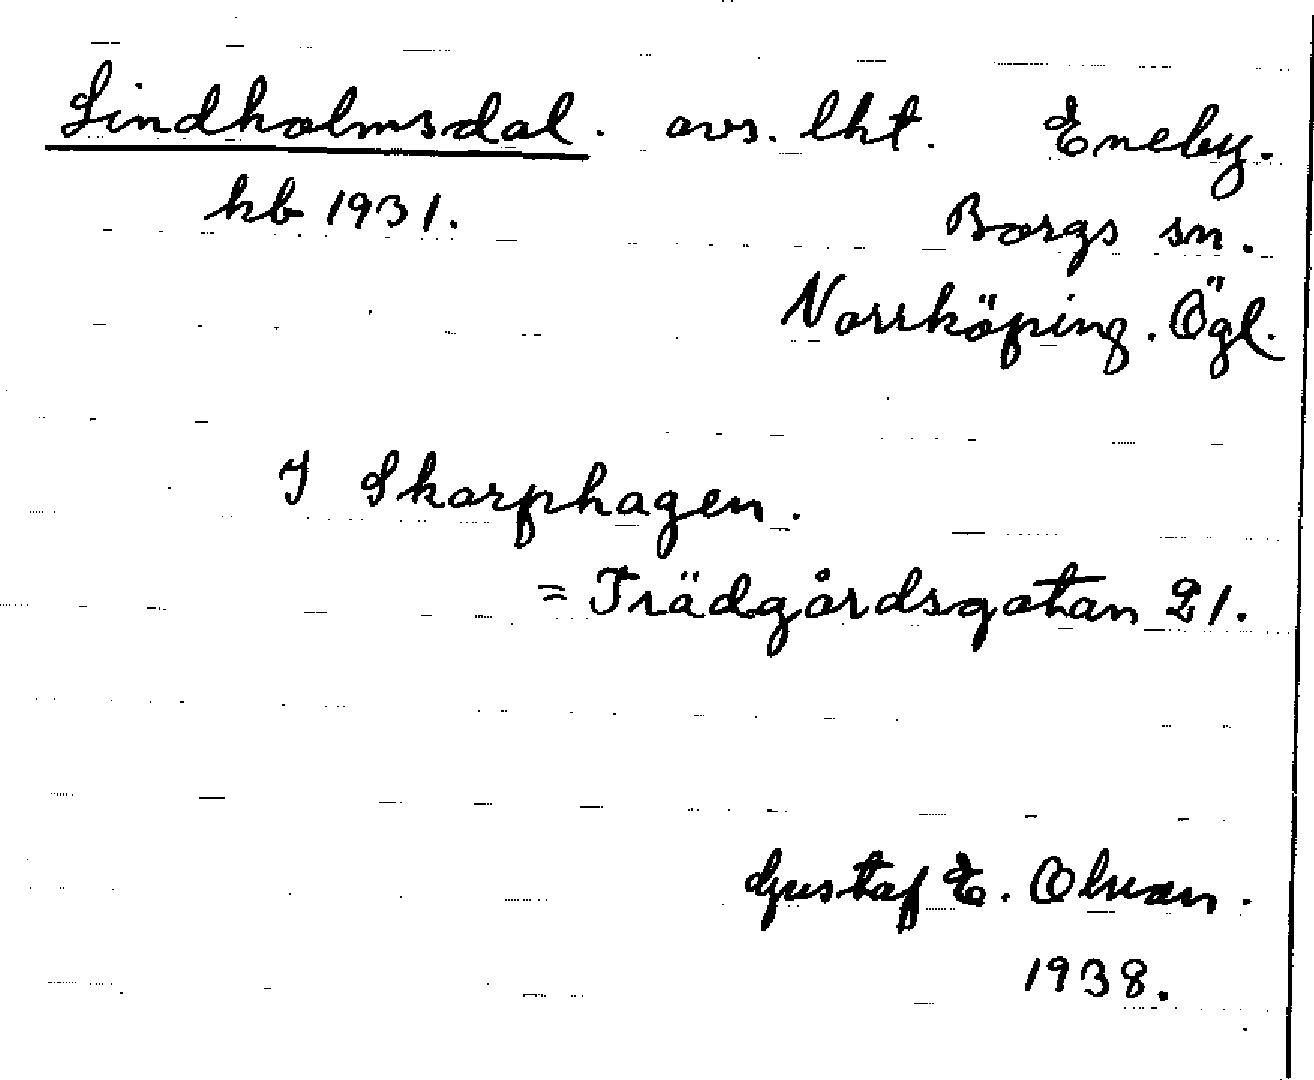 Lindholmsdal. avs. lht. Eneby.
kb 1931. Borgs sn.
Norrköping. Ögl.
I Skarphagen.
= Trädgårdsgatan 21.
Gustaf E. Olsson.
1938.